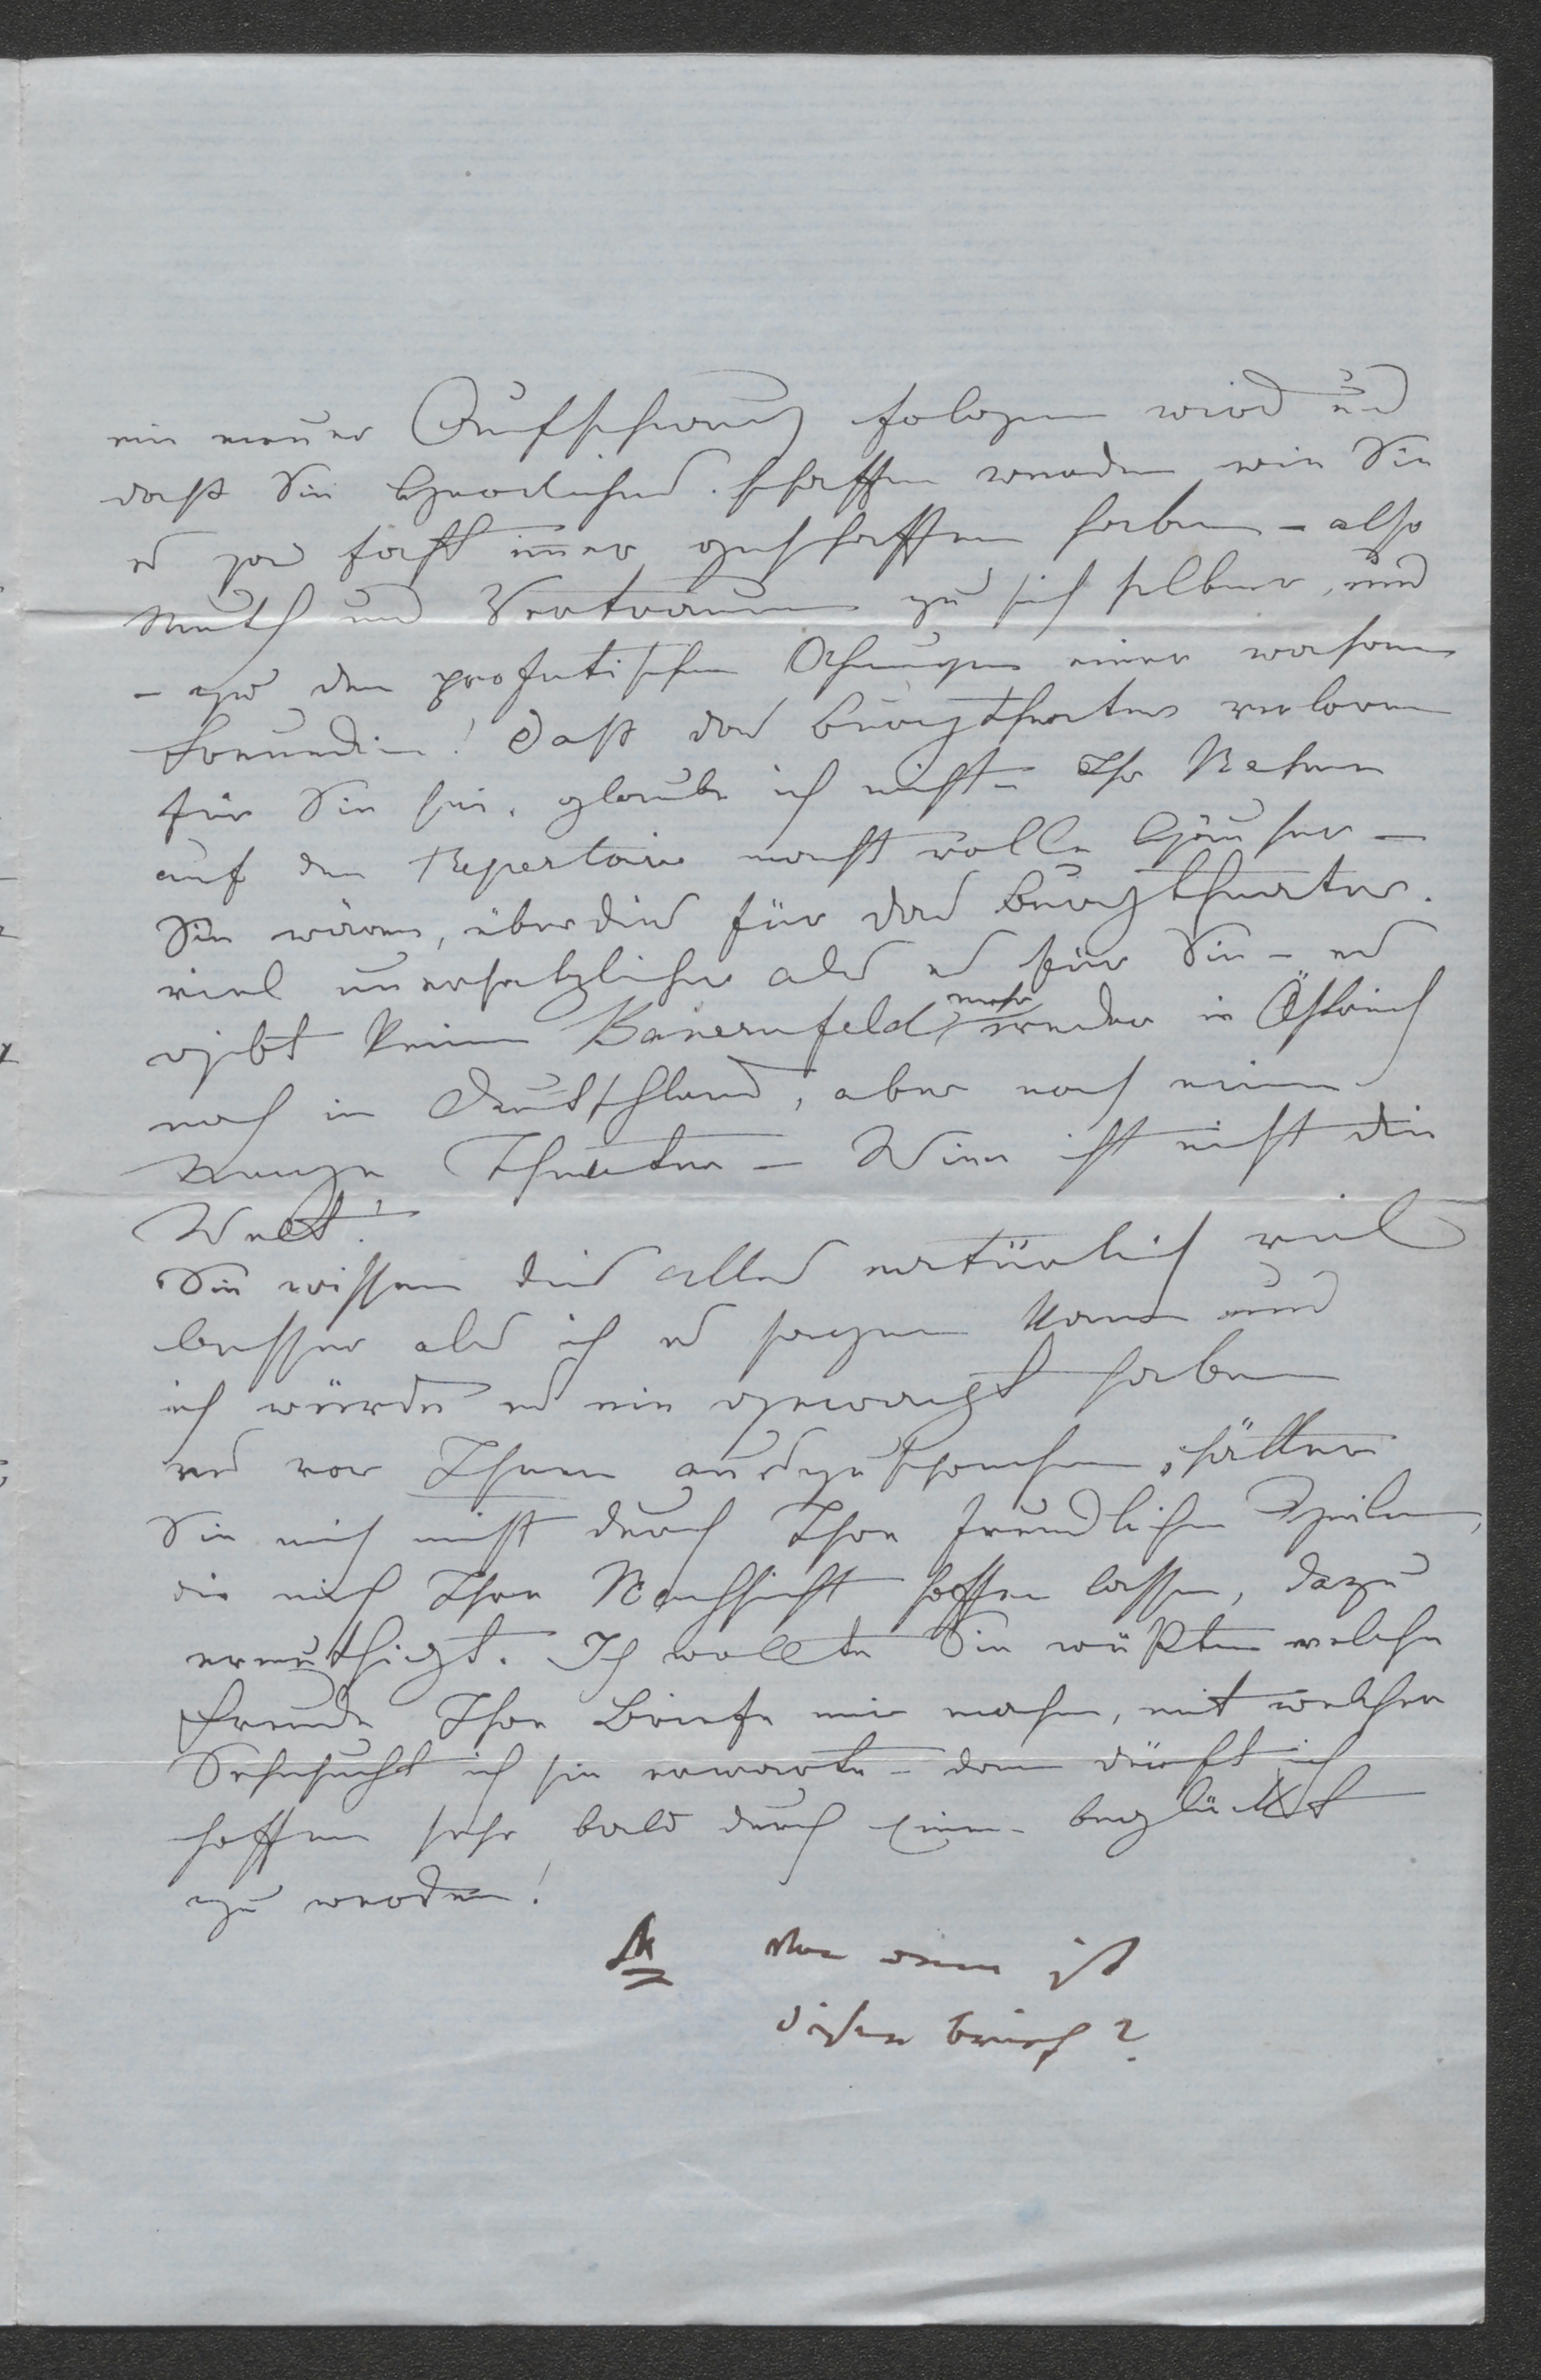 ein neuer Aufschwung folgen wird und
daß Sie Herrliches schaffen werden wie Sie
es ja fast im̅er geschaffen haben – also
Muth und Vertrauen zu sich selber, und
– zu den profetischen Ahnungen einer wahren
Freundin! Daß das Burgtheater verloren
für Sie sei, glaube ich nicht – Ihr Nahme
auf dem Repertoire macht volle Häuser –
Sie wären, überdies für das Burgtheater
viel unersetzlicher als es für Sie – es
gibt keinen Bauernfeld mehr weder in Östreich
noch in Deutschland, aber noch einige
Theater – Wien ist nicht die
Welt!
Sie wissen dies alles natürlich viel
besser als ich es sagen kann und
ich würde es nie gewagt haben
es vor Ihnen auszusprechen, hätten
Sie mich nicht durch Ihre freundlichen Zeilen,
die mich Ihre Nachsicht hoffen lassen, dazu
ermuthigt. Ich wollte Sie wüßten welche
Freude Ihre Briefe mir machen, mit welcher
Sehnsucht ich sie erwarte – dann dürft ich
hoffen sehr bald durch Einen beglückt
zu werden!
Von wem ist
dieser Brief?